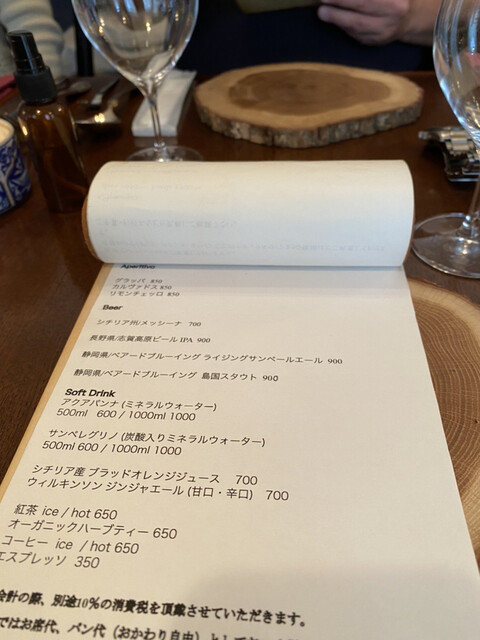 Aperitivo
グラッパ 850
カルヴァドス 850
リモンチェッロ 850
Beer
シチリア州/メッシーナ 700
長野県/志賀高原ビール IPA 900
静岡県/ベアードブルーイング ライジングサンペールエール 900
静岡県/ベアードブルーイング 島国スタウト 900
Soft Drink
アクアパンナ (ミネラルウォーター)
500ml 600 / 1000ml 1000
サンペレグリノ (炭酸入りミネラルウォーター)
500ml 600 / 1000ml 1000
シチリア産 ブラッドオレンジジュース 700
ウィルキンソン ジンジャエール (甘口・辛口) 700
紅茶 ice / hot 650
オーガニックハーブティー 650
コーヒー ice / hot 650
エスプレッソ 350
会計の際、別途10%の消費税を頂戴させていただきます。
ではお席代、パン代（おかわり自由）として